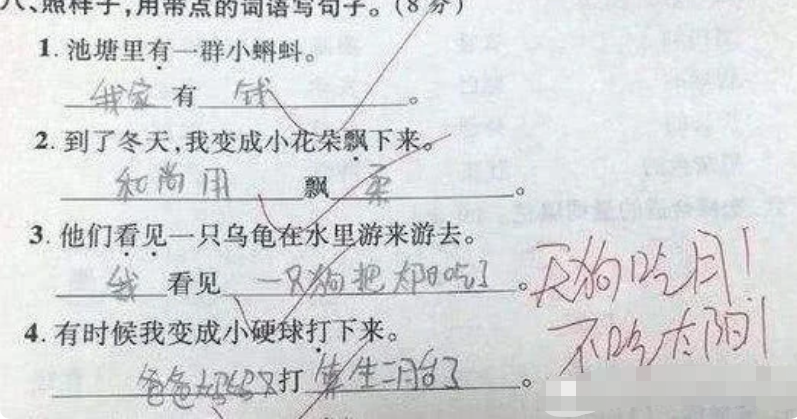 八、照样子,用带点的词语写句子。(8分)
1. 池塘里有一群小蝌蚪。
我家 有 钱 。
2. 到了冬天,我变成小花朵飘下来。
和尚用 飘柔 。
3. 他们看见一只乌龟在水里游来游去。
我 看见 一只狗把太阳吃了 。
天狗吃月!
不吃太阳!
4. 有时候我变成小硬球打下来。
爸爸妈妈又打算生二胎了 。